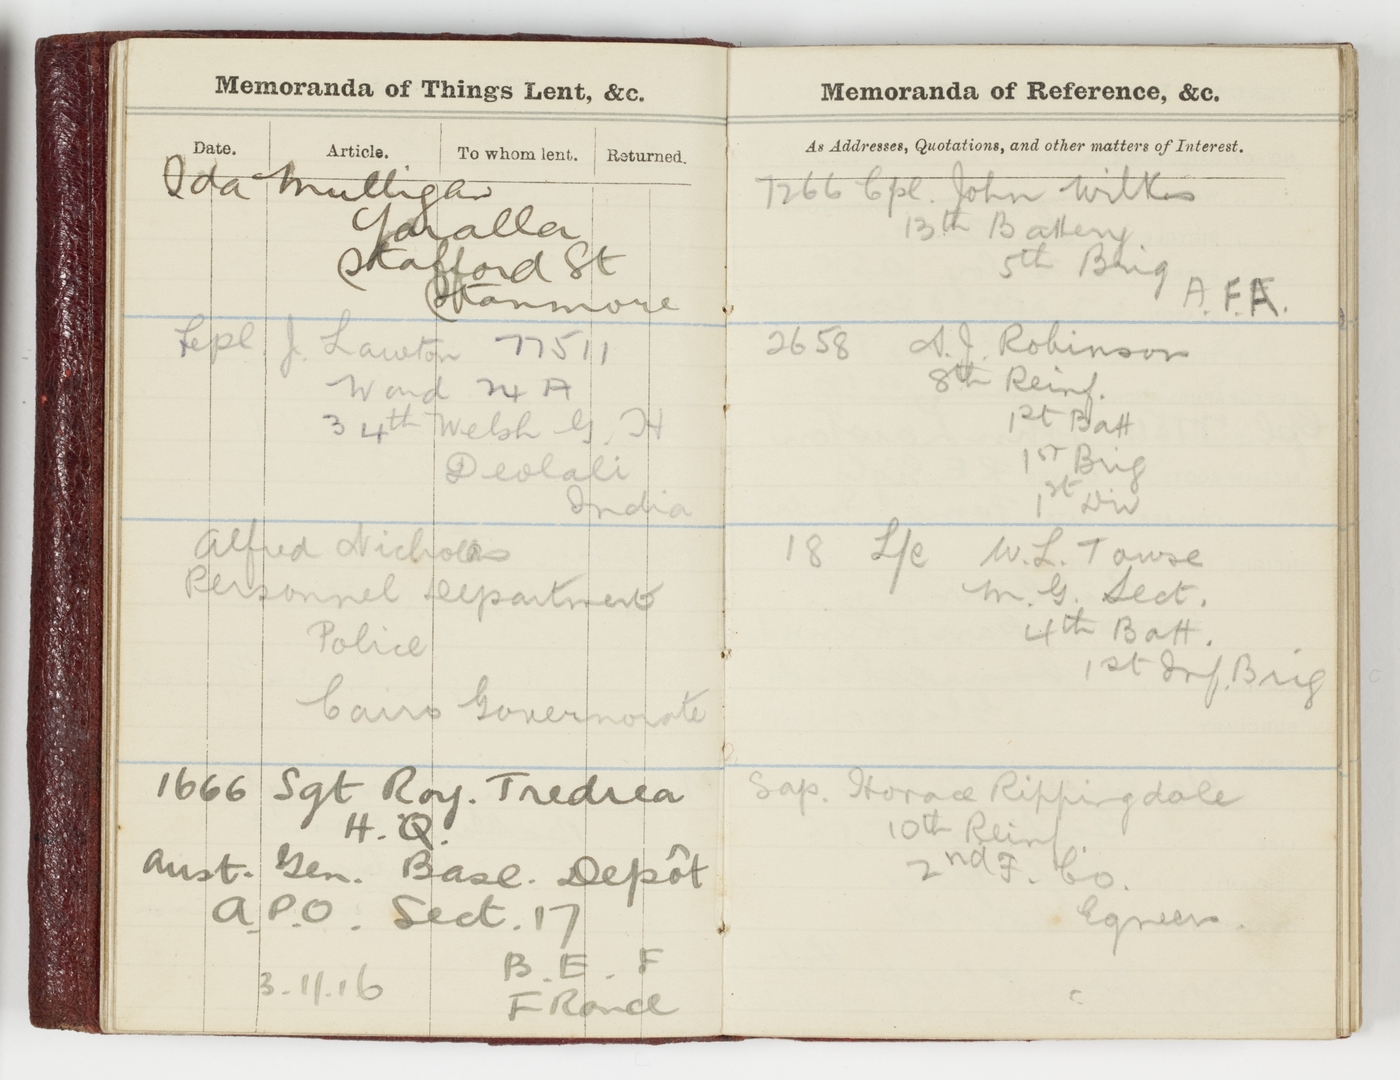 Memoranda of Things Lent, &c.
Date. Article. To whom lent. Returned.
Ida Mulligan
Yaralla
Stafford St
Stanmore
Lcpl J. Lawton 77511
Ward 24 A
34th Welsh G. H
Deolali
India
Alfred Nicholas
Personnel Department
Police
Cairo Governorate
1666 Sgt Roy. Tredrea
H. Q.
Aust. Gen. Base. Depôt
A.P.O. Sect. 17
B. E. F
3.11.16
France
Memoranda of Reference, &c.
As Addresses, Quotations, and other matters of Interest.
7266 Cpl. John Wilkes
13th Battery
5th Brig
A.F.A.
2658 A. J. Robinson
8th Reinf.
1st Batt
1st Brig
1st Div
18 L/c W. L. Towse
M. G. Sect.
4th Batt.
1st Inf. Brig
Sap. Horace Rippingdale
10th Reinf.
2nd F. Co.
Egneers.